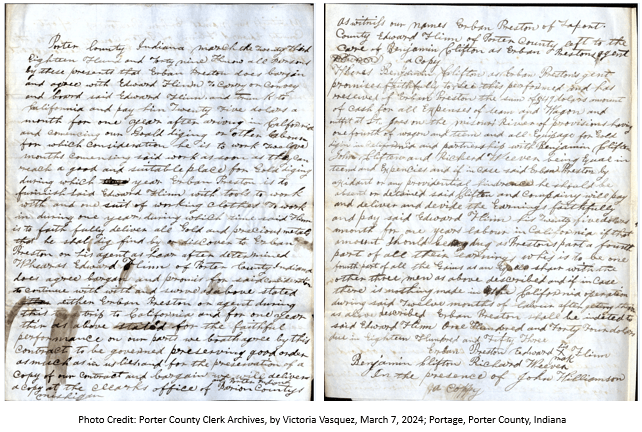 Porter County Indiana March the Twenty third
Eighteen Hund and Forty nine Know all Persons
by these presents that Erban Preston does bargin
and agree with Edward Flinn to Carry on Convay
and board said Edward Flinn and thus to
California and pay him Twenty five dolars
month for one year after ariving California
and comencing our Goald diging or other labour
for which consideration he is to work twelve
months comensing said work as soon as they can
reach a good and suitable place for Goald diging
during which year Erban Preston is to
furnish said Edward Flinn with tools to work
with and suit of working Clothes to work
in during one year during which time said Flinn
is to faithfully deliver all Gold and precious metals
that he shall dig find or discover to Erban
Preston or his agent as hereafter determined
Whereas Edward Flinn of Porter County Indiana
does agree bargain and promis for said Consideration
to continue with faith and sware labour stated
either Erban Preston or agent during
this trip to California and for one year
then as above stated for the faithful
performance on our parts we both agree by this
Contract to be governed preserving good order
as much as in us and for the preservation of a
Copy of our contract and bargain we will deliver
a copy at the Clearks office of Porter County
as witness our names Erban Preston of Laport
County Edward Flinn of Porter County left to the
Care of Benjamin Clifton as Erban Prestons agent
a Copy
Benjamin Clifton as Erban Prestons agent
promises faithfully to see this performed and has
received of Erban Preston the sum of dolars amount
of Cash for all Expenses of team and Wagon and
at St. Joes on the Misouri River of provisions having
one fourth of wagon and team and all Equipage for Gold
diging in California and partnership with Benjamin Clifton
John Clifton and Richard Weeven being Equal in
team and Expencies and if in case said Erban Preston by
accident or any providential he should be
or detained said Clifton and Company will pay
and deliver and devide the Earnings faithfully
and pay said Edward Flinn his Twenty five dolars
month for one years labour in California if that
amount Should be dug as Prestons part a fourth
part of all their Earnings which is to be one
fourth part of all the Gains at an Equal share with the
other three men as above described and if in case
there is nothing made in California in operation
during said Twelve month in California after
as above described Erban Preston shall be indeted to
said Edward Flinn One Hundred and Forty Nine dolars
due in Eighteen Hundred and Fifty Three
Erban Preston Edward Flinn
Benjamin Clifton Richard Weeven
In the presence of John Williamson
a Copy
Photo Credit: Porter County Clerk Archives, by Victoria Vasquez, March 7, 2024; Portage, Porter County, Indiana